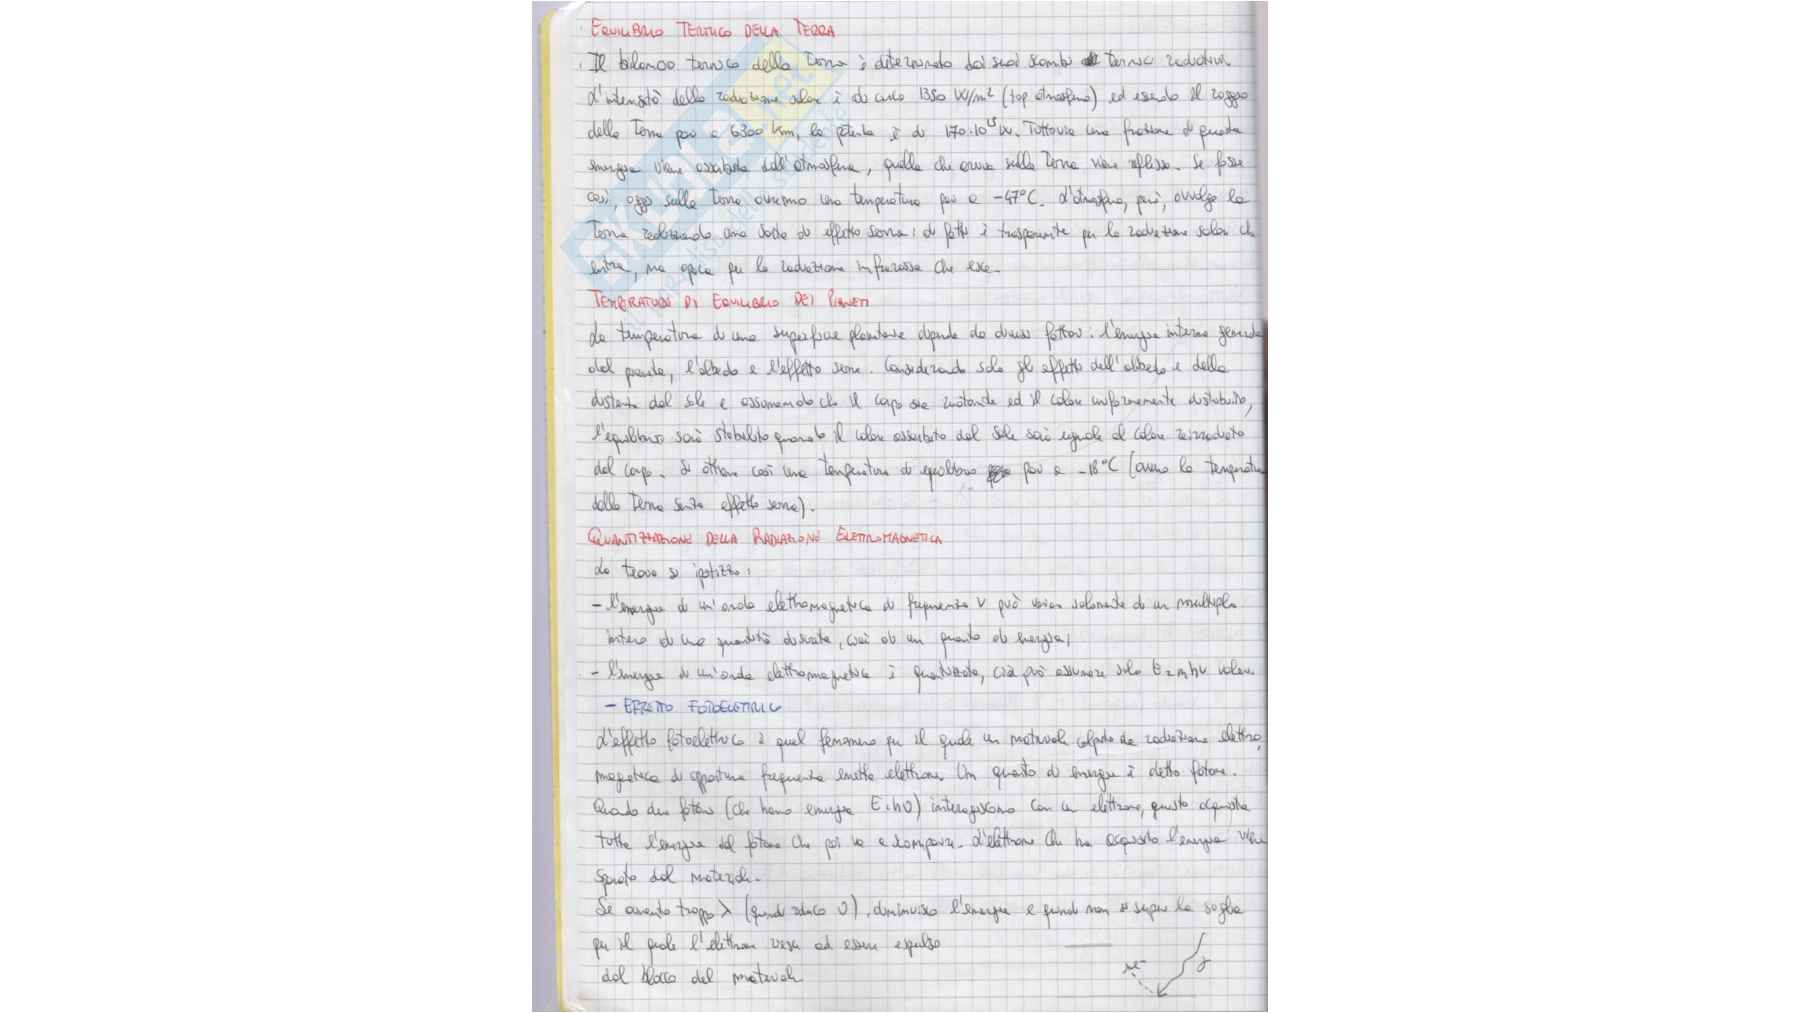 EQUILIBRIO TERMICO DELLA TERRA
Il bilancio termico della Terra è determinato dai suoi scambi termici radiativi.
L'intensità della radiazione solare è di circa 1350 W/m² (top atmosfera) ed essendo il raggio
della Terra pari a 6300 Km, la potenza è di 170·10¹⁵ W. Tuttavia una frazione di questa
energia viene assorbita dall'atmosfera, quella che arriva sulla Terra viene riflessa. Se fosse
così, oggi sulla Terra avremmo una temperatura pari a -47°C. L'atmosfera, però, avvolge la
Terra realizzando una sorta di effetto serra: di fatto è trasparente per la radiazione solare che
entra, ma opaca per la radiazione infrarossa che esce.
TEMPERATURA DI EQUILIBRIO DEI PIANETI
La temperatura di una superficie planetaria dipende da diversi fattori: l'energia interna generata
dal pianeta, l'albedo e l'effetto serra. Considerando solo gli effetti dell'albedo e della
distanza dal sole e assumendo che il corpo sia ruotante ed il calore uniformemente distribuito,
l'equilibrio sarà stabilito quando il calore assorbito dal Sole sarà uguale al calore reirradiato
dal corpo. Si ottiene così una temperatura di equilibrio pari a -18°C (ovvero la temperatura
della Terra senza effetto serra).
QUANTIZZAZIONE DELLA RADIAZIONE ELETTROMAGNETICA
La teoria si ipotizza:
- l'energia di un'onda elettromagnetica di frequenza ν può variare solamente di un multiplo
intero di una quantità discreta, cioè di un quanto di energia;
- l'energia di un'onda elettromagnetica è quantizzata, cioè può assumere solo E=nhν valori.
- EFFETTO FOTOELETTRICO
L'effetto fotoelettrico è quel fenomeno per il quale un materiale colpito da radiazione elettro
magnetica di opportuna frequenza emette elettroni. Un quanto di energia è detto fotone.
Quando due fotoni (che hanno energia E=hν) interagiscono con un elettrone, questo acquista
tutta l'energia del fotone che poi va a scomparire. L'elettrone che ha acquisito l'energia viene
sparato dal materiale.
Se aumento troppo λ (quindi riduco ν), diminuisco l'energia e quindi non supero la soglia
per il quale l'elettrone vera ad essere espulso
dal blocco del materiale
e⁻ γ
SKUOLA.net